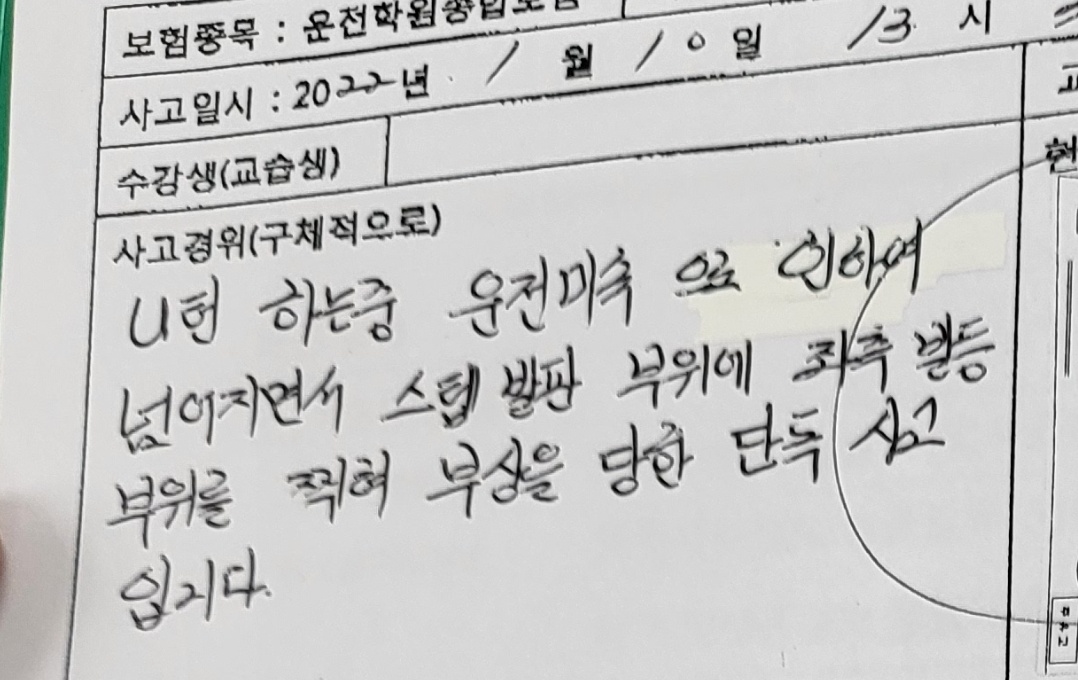 보험종목 : 운전학원종합보험
사고일시 : 2022년 1월 10일 13시
수강생(교습생)
사고경위(구체적으로)
U턴 하는중 운전미숙 으로 인하여
넘어지면서 스텝 발판 부위에 좌측 발등
부위를 찍혀 부상을 당한 단독 사고
입니다.